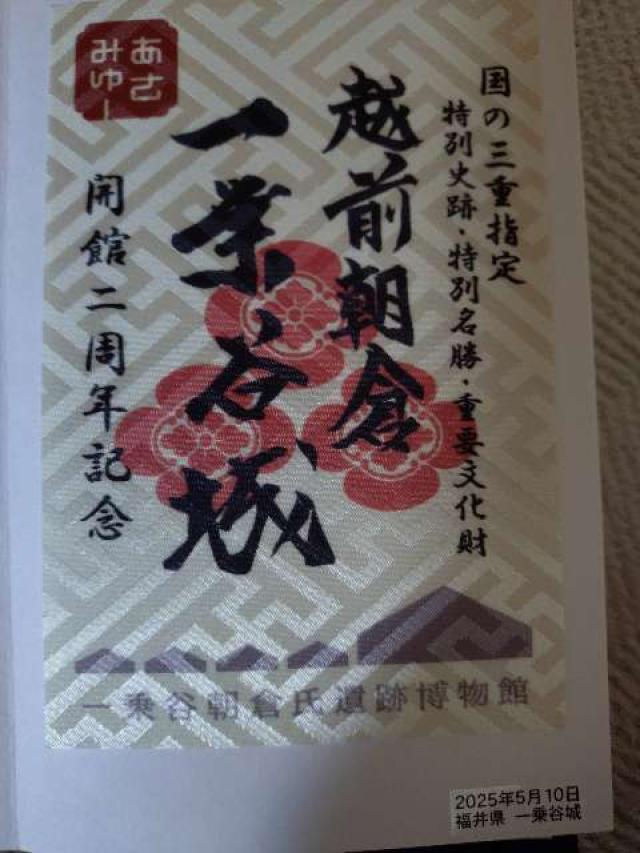 国の三重指定
特別史跡・特別名勝・重要文化財
越前朝倉
一乗谷城
開館二周年記念
あさ
みゅー
一乗谷朝倉氏遺跡博物館
2025年5月10日
福井県 一乗谷城